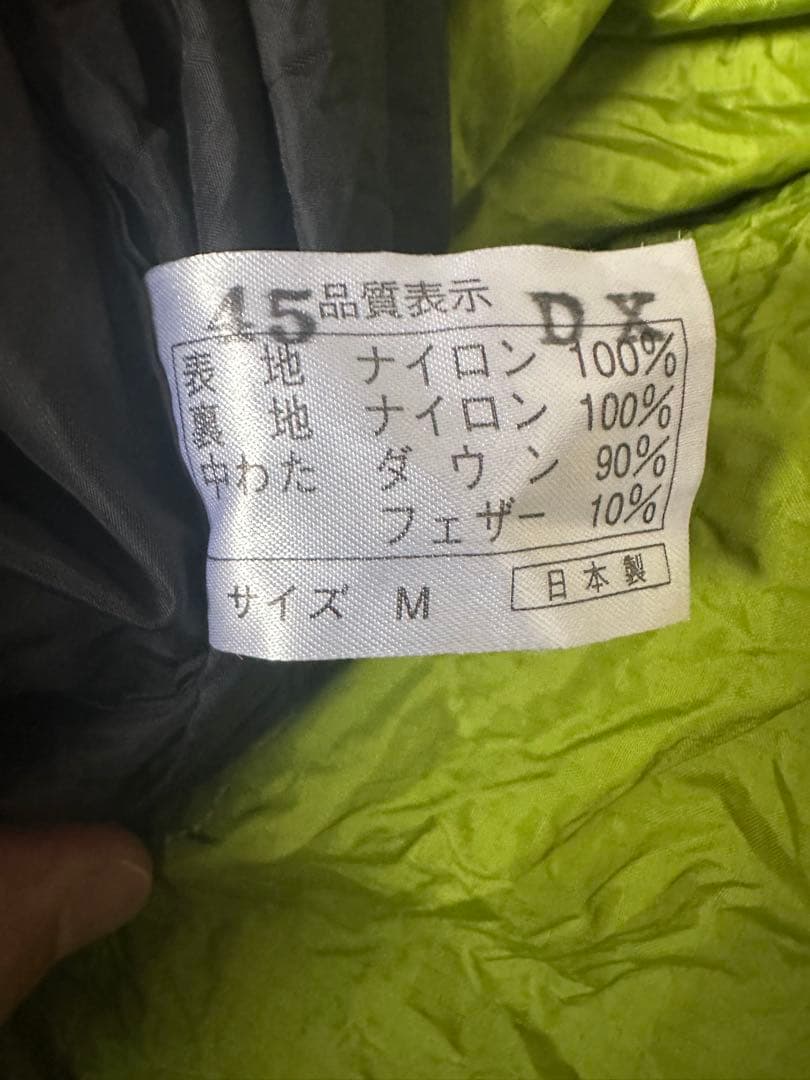 45 品質表示 DX
表地 ナイロン 100%
裏地 ナイロン 100%
中わた ダウン 90%
フェザー 10%
サイズ M 日本製